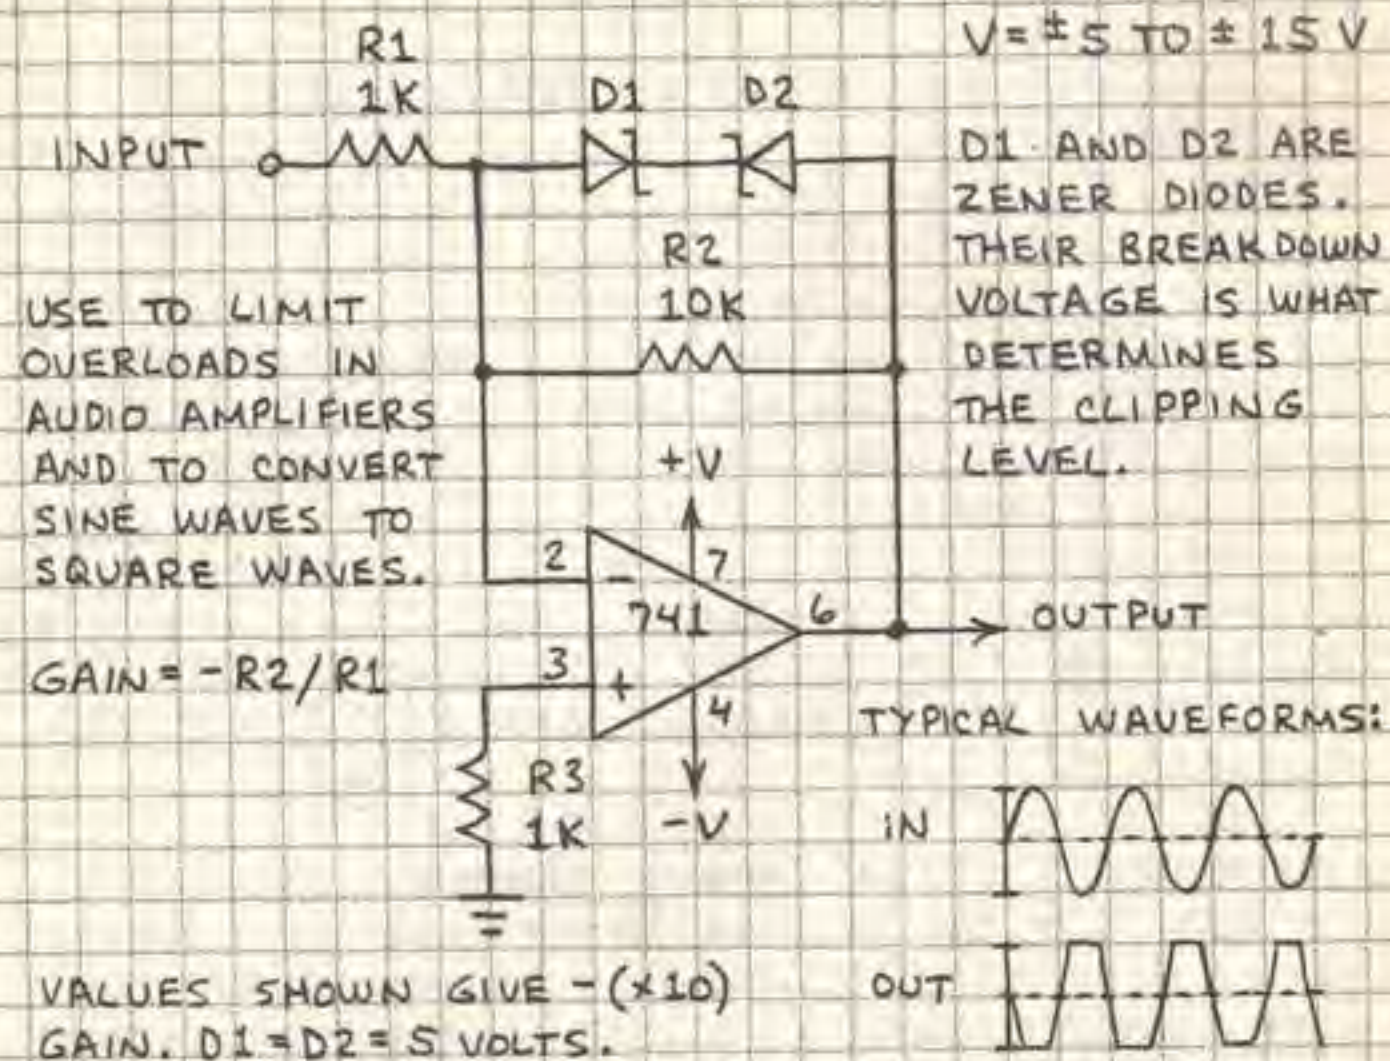 V = ±5 TO ±15 V
R1
1K
D1 D2
INPUT
D1 AND D2 ARE
ZENER DIODES.
THEIR BREAKDOWN
VOLTAGE IS WHAT
DETERMINES
THE CLIPPING
LEVEL.
R2
10K
USE TO LIMIT
OVERLOADS IN
AUDIO AMPLIFIERS
AND TO CONVERT
SINE WAVES TO
SQUARE WAVES.
+V
2 - 7
741 6
OUTPUT
3 + 4
GAIN = -R2/R1
R3
1K
-V
TYPICAL WAVEFORMS:
IN
OUT
VALUES SHOWN GIVE -(×10)
GAIN. D1 = D2 = 5 VOLTS.